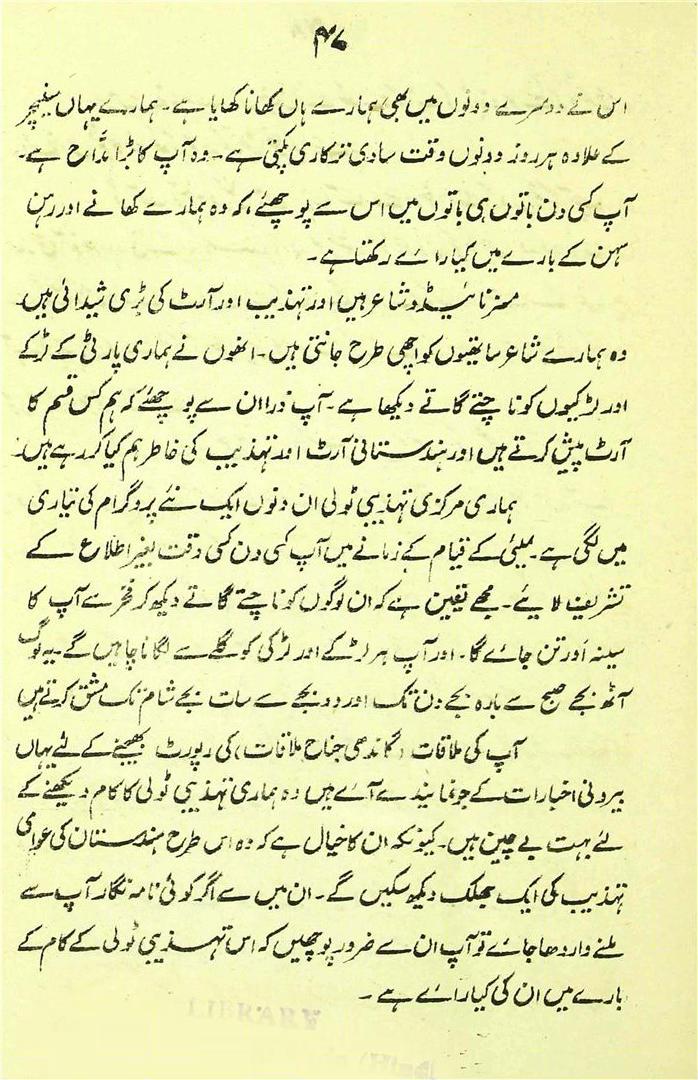 ۴۷
اس نے دوسرے دونوں میں بھی ہمارے ہاں کھانا کھایا ہے۔ ہمارے یہاں سنیچر
کے علاوہ ہر روز دونوں وقت سادی ترکاری پکتی ہے۔ وہ آپ کا بڑا مدّاح ہے۔
آپ کسی دن باتوں ہی باتوں میں اس سے پوچھئے، کہ وہ ہمارے کھانے اور رہن
سہن کے بارے میں کیا رائے رکھتا ہے۔
مسز نائیڈو شاعر ہیں اور تہذیب اور آرٹ کی بڑی شیدائی ہیں۔
وہ ہمارے شاعر ساتھیوں کو اچھی طرح جانتی ہیں۔ انھوں نے ہماری پارٹی کے لڑکے
اور لڑکیوں کو ناچتے گاتے دیکھا ہے۔ آپ ذرا ان سے پوچھئے کہ ہم کس قسم کا
آرٹ پیش کرتے ہیں اور ہندستانی آرٹ اور تہذیب کی خاطر ہم کیا کر رہے ہیں۔
ہماری مرکزی تہذیبی ٹولی ان دنوں ایک نئے پروگرام کی تیاری
میں لگی ہے۔ بمبئی کے قیام کے زمانے میں آپ کسی دن کسی وقت بغیر اطلاع کے
تشریف لائیے۔ مجھے یقین ہے کہ ان لوگوں کو ناچتے گاتے دیکھ کر فخر سے آپ کا
سینہ اور تن جائے گا۔ اور آپ ہر لڑکے اور لڑکی کو گلے سے لگانا چاہیں گے۔ یہ لوگ
آٹھ بجے صبح سے بارہ بجے دن تک اور دو بجے سے سات بجے شام تک مشق کرتے ہیں
آپ کی ملاقات (گاندھی جناح ملاقات) کی رپورٹ بھیجنے کے لئے یہاں
بیرونی اخبارات کے جو نمایندے آئے ہیں وہ ہماری تہذیبی ٹولی کا کام دیکھنے کے
لئے بہت بے چین ہیں۔ کیونکہ ان کا خیال ہے کہ وہ اس طرح ہندستان کی عوامی
تہذیب کی ایک جھلک دیکھ سکیں گے۔ ان میں سے اگر کوئی نامہ نگار آپ سے
ملنے واردھا جائے تو آپ ان سے ضرور پوچھیں کہ اس تہذیبی ٹولی کے کام کے
بارے میں ان کی کیا رائے ہے۔
LIBRARY